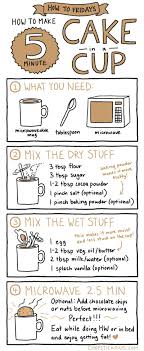 HOW TO FRIDAYS
HOW TO MAKE
5
MINUTE
CAKE
in a
CUP
1 WHAT YOU NEED:
microwaveable
mug
tablespoon
microwave
2 MIX THE DRY STUFF
3 tbsp flour
3 tbsp sugar
1-2 tbsp cocoa powder
1 pinch salt (optional)
1 pinch baking powder (optional)
baking powder
makes it more
3 MIX THE WET STUFF
1 egg
1-2 tbsp veg oil/butter
2 tbsp milk/water (optional)
1 splash vanilla (optional)
this makes it more moist
and less stuck on the cup!
4 MICROWAVE 2.5 MIN.
Optional: Add chocolate chips
or nuts before microwaving
Perfect!!!
Eat while doing HW or in bed
and enjoy getting fat! ♥